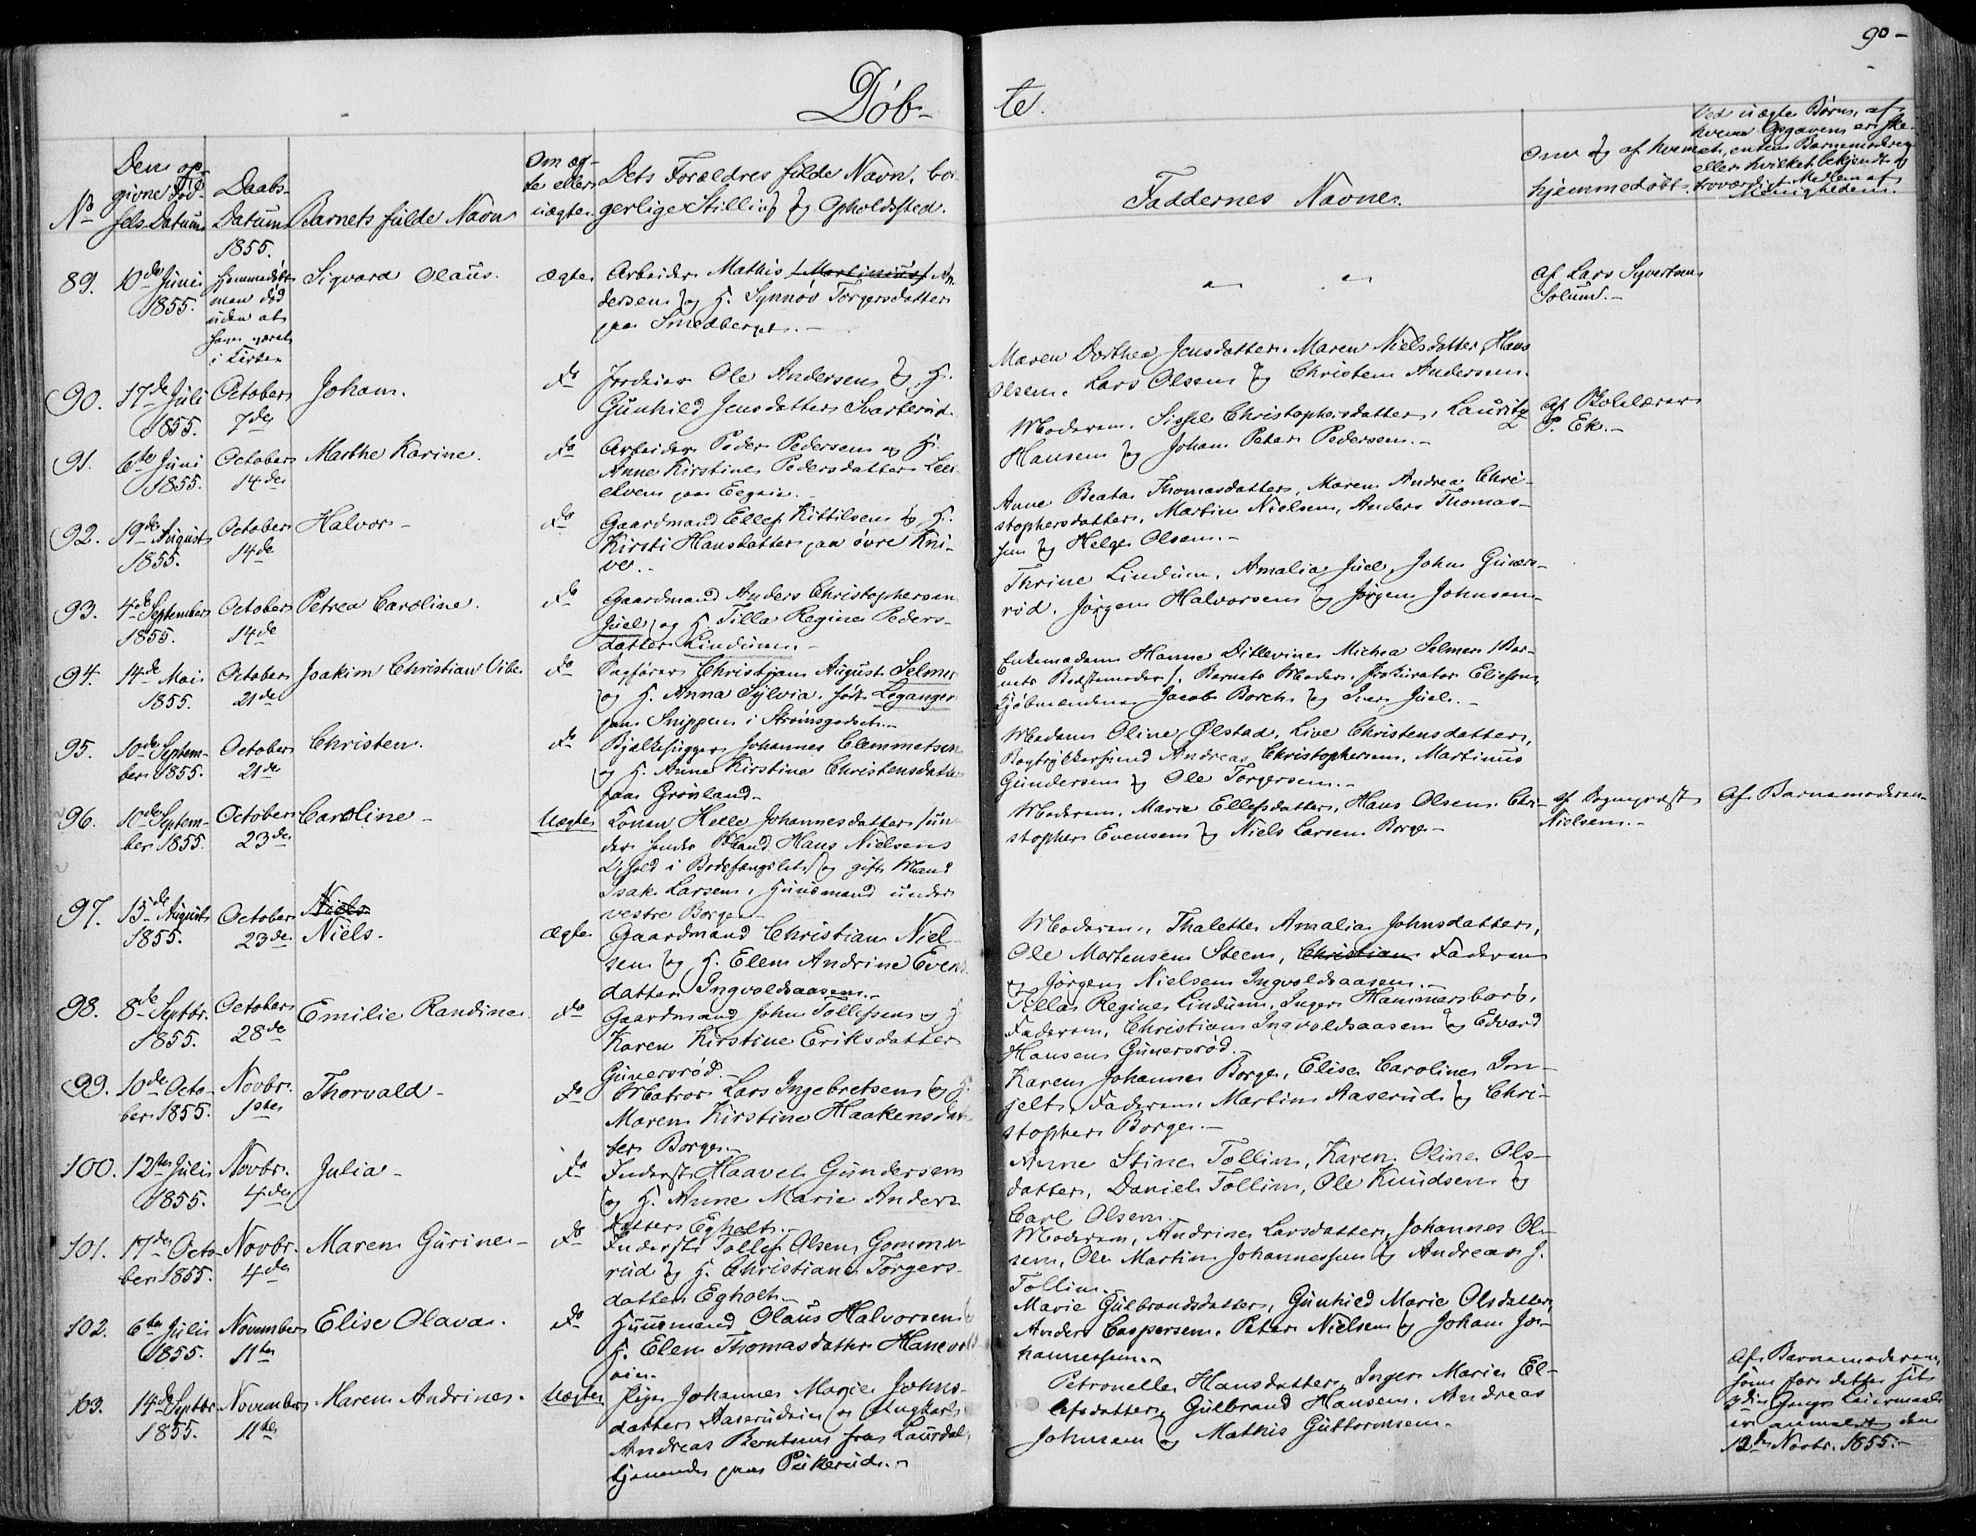 90-
Døb-
te.
No
Den op-
givne Fød-
sels Datum
Daabs-
Datum
1855.
Barnets fulde Navn
Om æg-
te eller
uægte.
Dets Forældres fulde Navn, bor-
gerlige Stilling og Opholdssted.
Faddernes Navne.
Om og af hvem
hjemmedøbt.
Ved uægte Børn, af
hvem Opgaven er ske-
et, enten Barnemoderen
eller hvilket bekjendt og
troværdigt Medlem af
Menigheden.
89.
10de Juni
1855.
Hjemmedøbt
men død
uden at
have været
i Kirken
Sigvard Olaus.
ægte
Arbeider Mathis Martinius An-
dersen og H. Synnøv Torgersdatter
paa Smedberget.-
" "
af Lars Syvertsen
Solum.-
90.
17de Juli
1855.
October
7de
Johan.
do
Jordeier Ole Andersen og H.
Gunhild Jensdatter Svarterud.
Maren Dorthea Jensdatter, Maren Nielsdatter, Hans
Olsen, Lars Olsen og Christen Andersen.
91.
6te Juni
1855.
October
14de
Marthe Karine.
do
Arbeider Peder Pedersen og H.
Anne Kirstine Pedersdatter Leer-
elven paa Eegnin.
Moderen, Sissel Christophersdatter, Lauritz
Hansen og Johan Peter Pedersen.-
af Skolelærer
P. Ek.-
92.
19de August
1855.
October
14de
Halvor-
do
Gaardmand Ellef Kittilsen og H.
Kirsti Hansdatter paa øvre Kni-
ve.-
Anne Beata Thomasdatter, Maren Andrea Chri-
stophersdatter, Martin Nielsen, Anders Thomas-
sen og Helge Olsen.-
93.
4de September
1855.
October
14de
Petrea Caroline.
do
Gaardmand Anders Christophersen
Juel og H. Tilla Regine Peders-
datter Lindum.-
Thrine Lindum, Amalia Juel, John Guner-
rød, Jørgen Halvorsen og Jørgen Johnsen-
94.
14de Mai
1855.
October
21de
Joakim Christian Vibe
do
Sagfører Christian August Selmer
og H. Anna Sylvia, født Leganger
paa Snippen i Strømsgodset.-
Enkemadam Hanne Ditlevine Michea Selmer (Bar-
nets Bedstemoder), Barnets Moder, Prokurator Eliesen,
Kjøbmændene Jacob Borch og Iver Juel.-
95.
10de Septem-
ber 1855.
October
21de
Christen.
do
Bjelkehugger Johannes Clemmetsen
og H. Anne Kirstine Christensdatter
paa Grønland-
Madam Oline Ølstad, Live Christensdatter,
Bogtrykkersvend Andreas Christophersen, Martinus
Gundersen og Ole Torgersen.-
96.
10de Septem-
ber 1855.
October
23de
Caroline-
Uægte
Konen Helle Johannesdatter (un-
der hendes Mand Hans Nielsens
Ophold i Bodsfængslet) og gift Mand
Isak Larsen, Huusmand under
vestre Borge-
Moderen, Marie Ellefsdatter, Hans Olsen, Chri-
stopher Evensen og Niels Larsen Borge-
af Sognepræst
Nielsen.-
Af Barnemoderen-
97.
15de August
1855.
October
23de
Niels
Niels.
ægte
Gaardmand Christian Niel-
sen og H. Elen Andrine Evens-
datter Ingvoldsaasen.-
Moderen, Thalette Amalia Johnsdatter,
Ole Mortensen Steen, Christian Faderen
og Jørgen Nielsen Ingvoldsaasen.-
98.
8de Septbr.
1855.
October
28de
Emilie Randine
do
Gaardmand John Tollefsen og H.
Karen Kirstine Eriksdatter
Gunersrød.-
Tilla Regine Lindum, Inger Hammersborg,
Faderen, Christian Ingvoldsaasen og Edvard
Hansen Gunersrød.-
99.
10de Octo-
ber 1855.
Novbr.
1ste
Thorvald-
do
Matros Lars Ingebretsen og H.
Maren Kirstine Haakensdat-
ter Borge-
Karen Johanne Borge, Elise Caroline Im-
jelt, Faderen, Martin Aaserud og Chri-
stopher Borge.-
100.
12te Juli
1855.
Novbr.
4de
Julia-
do
Inderst Haavel Gundersen
og H. Anne Marie Anders-
datter Egholt.-
Anne Stine Tollin, Karen Oline Ols-
datter, Daniel Tollin, Ole Knudsen og
Carl Olsen.
101.
17de Octo-
ber 1855.
Novbr.
4de
Maren Gurine-
do
Inderst Tollef Olsen Gommer-
rud og H. Christiane Torgers-
datter Egholt-
Moderen, Andrine Larsdatter, Johannes Ol-
sen, Ole Martin Johannessen og Andreas J.
Tollin.-
102.
6te Juli
1855.
November
11te
Elise Olava.
do
Huusmand Olaus Halvorsen og
H. Elen Thomasdatter Hanevold-
eie.-
Marie Gulbrandsdatter, Gunhild Marie Olsdatter,
Anders Caspersen, Peter Nielsen og Johan Jo-
hannessen.-
103.
14de Septbr
1855.
November
11te
Karen Andrine.
Uægte
Pige Johanne Marie Johns-
datter Aaserudeie og Ungkarl
Andreas Berntsen fra Laurdal,
tjenende paa Pukerud.-
Petronelle Hansdatter, Inger Marie El-
lefsdatter, Gulbrand Hansen, Andreas
Johnsen og Mathis Guttormsen.-
Af Barnemoderen,
som for dette sit
3die Gangs Leiermaal
er anmeldt den
12te Novbr. 1855.-